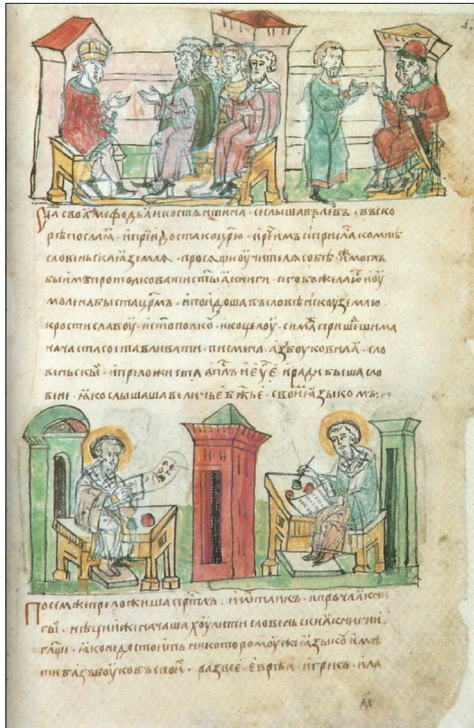 сна своꙗ меѳодьꙗ и костѧнтина · и слышавъ левъ · въско
рѣ посла ꙗ · и прїидоста ко црю · и рче имъ се присла ко мнѣ
словеньскаꙗ землѧ · просѧщи оучителѧ собѣ моглъ
бы имъ протолковати стыꙗ книги · сего бо желаю · и оу
молена быста црмъ · и поидоша въ словѣнскоу землю
к ростиславоу · и стополкоу · и коцелоу · сима пришешима
начаста составливати · писмена азъбоуковнаꙗ · сло
веньскы · и преложиста аплъ и еуе · и ради быша сло
вене · ꙗко слышаша величье бжье · свои ꙗзыкомъ :
Посем же преложиша · и прочаꙗ кни
гы · нѣции же начаша хоулити словеньскиꙗ книги
глще · ꙗко не достоить никоторомоу же ꙗзыкоу имѣ
ти азъбоуковъ свои · развее еврѣи · и грекъ · и ла